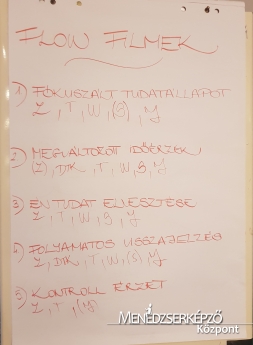 FLOW FILMEK
1) FÓKUSZÁLT TUDATÁLLAPOT
Z, T, W, (S), Y
2) MEGVÁLTOZOTT IDŐÉRZÉK
(Z), DTK, T, W, S, Y
3) ÉNTUDAT ELVESZTÉSE
Z, T, W, S, Y
4) FOLYAMATOS VISSZAJELZÉS
Z, DTK, T, W, (S), Y
5) KONTROLL ÉRZET
Z, T, (W)
MENEDZSERKÉPZŐ
Központ